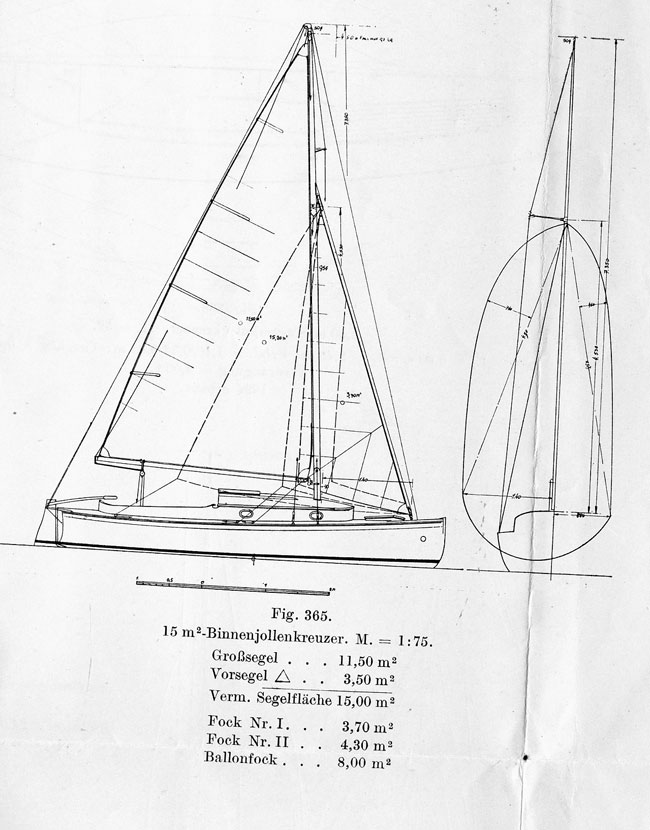 7.350
15,20 m²
Fig. 365.
15 m²-Binnenjollenkreuzer. M. = 1:75.
Großsegel . . . 11,50 m²
Vorsegel △ . . 3,50 m²
Verm. Segelfläche 15,00 m²
Fock Nr. I. . . 3,70 m²
Fock Nr. II . . 4,30 m²
Ballonfock . . . 8,00 m²